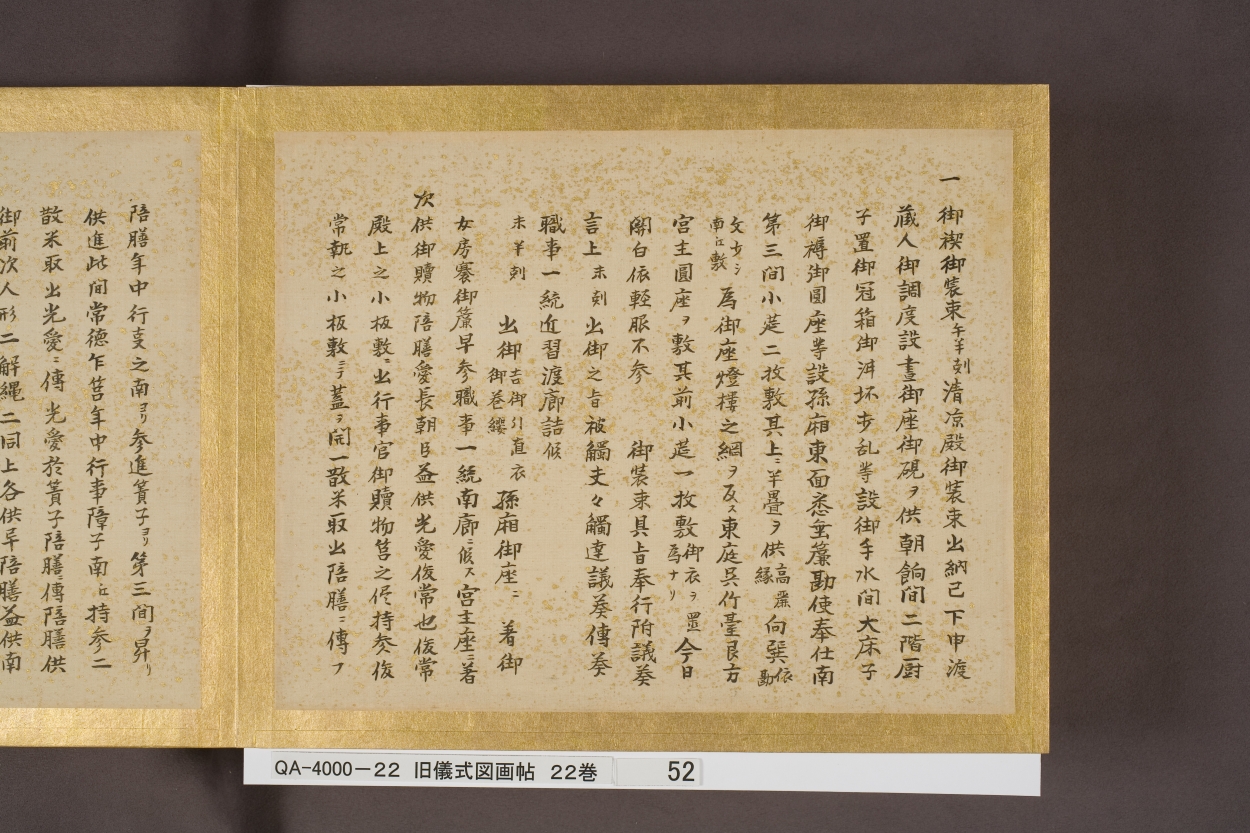 一御禊御装束午半刻清凉殿御装束出納已下申渡
蔵人御調度設晝御座御硯ヲ供朝餉間二階厨
子置御冠箱御泔坏歩乱等設御手水間大床子
御褥御圓座等設孫廂東面悉垂簾勘使奉仕南
第三間小莚二枚敷其上ニ半疊ヲ供高麗縁向巽依勘
文歩シ南江敷為御座燈樓之綱ヲ反ス東庭呉竹臺艮方
宮主圓座ヲ敷其前小莚一枚敷御衣ヲ置為ナリ今日
關白依輕服不参　御装束具旨奉行附議葵
言上未刻出御之旨被觸丈々觸達議葵傳葵
職事一統近習渡廊詰候
未半刻出御吉御引直衣御巻纓孫廂御座ニ着御
女房褰御簾早参職事一統南廊ニ候ス宮主座ニ着
次供御贖物陪膳愛長朝臣益供光愛俊常也俊常
殿上之小板敷ニ出行事官御贖物筥之侭持参俊
常執之小板敷ニテ蓋ヲ開一散米取出陪膳ニ傳フ
陪膳年中行事之南ヨリ参進簀子ヨリ第三間ヲ昇リ
供進此間常德乍筥年中行事障子南江持参二
散米取出光愛ニ傳光愛於簀子陪膳ニ傳陪膳供
御前次人形二解縄二同上各供早陪膳益供南
QA-4000-22 旧儀式図画帖 22巻 52